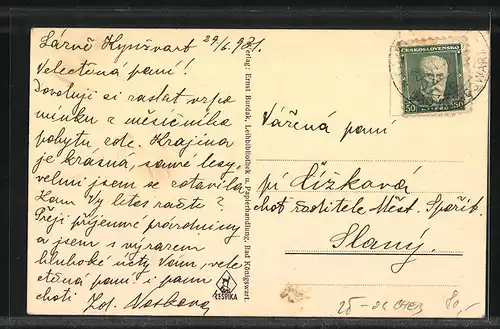 Lázně Kynžvart 29/6. 931.
Velectěná paní!
Dovoluji si zaslat vzpo
mínku z měsíčního
pobytu zde. Krajina
je krásná, samé lesy,
velmi jsem se zotavila
Kam Vy letos račte?
Přeji příjemné prázdniny
a jsem s výrazem
hluboké úcty Vám, vele
ctěná paní i panu
choti Zd.
Verlag: Ernst Burdak, Leihbibliothek u. Papierhandlung, Bad Königswart.
LESPIKA
ČESKOSLOVENSKO
50 50
Vážená paní
pí Čížková
choť ředitele Měst. Spořit.
Slaný.
80,-